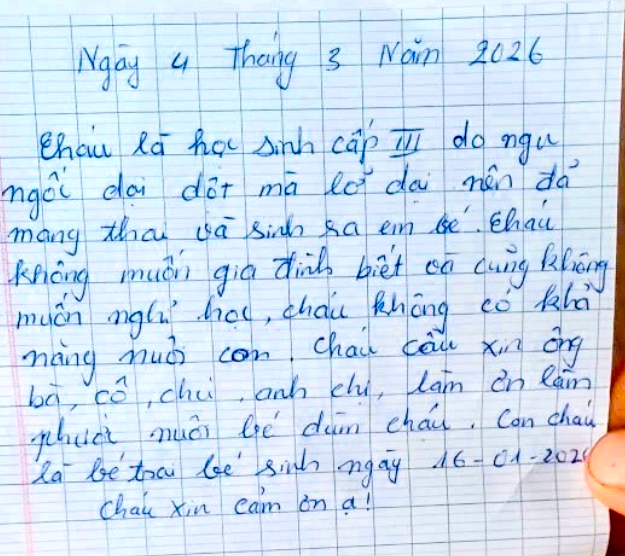 Ngày 4 Tháng 3 Năm 2026
Cháu là học sinh cấp III do ngu
ngôi dại dốt mà lỡ dại nên đã
mang thai và sinh ra em bé. Cháu
không muốn gia đình biết và cũng không
muốn nghỉ học, cháu không có khả
năng nuôi con. Cháu cầu xin ông
bà, cô, chú, anh chị, làm ơn làm
phước nuôi bé dùm cháu. Con cháu
là bé trai bé sinh ngày 16-01-202
Cháu xin cảm ơn ạ!